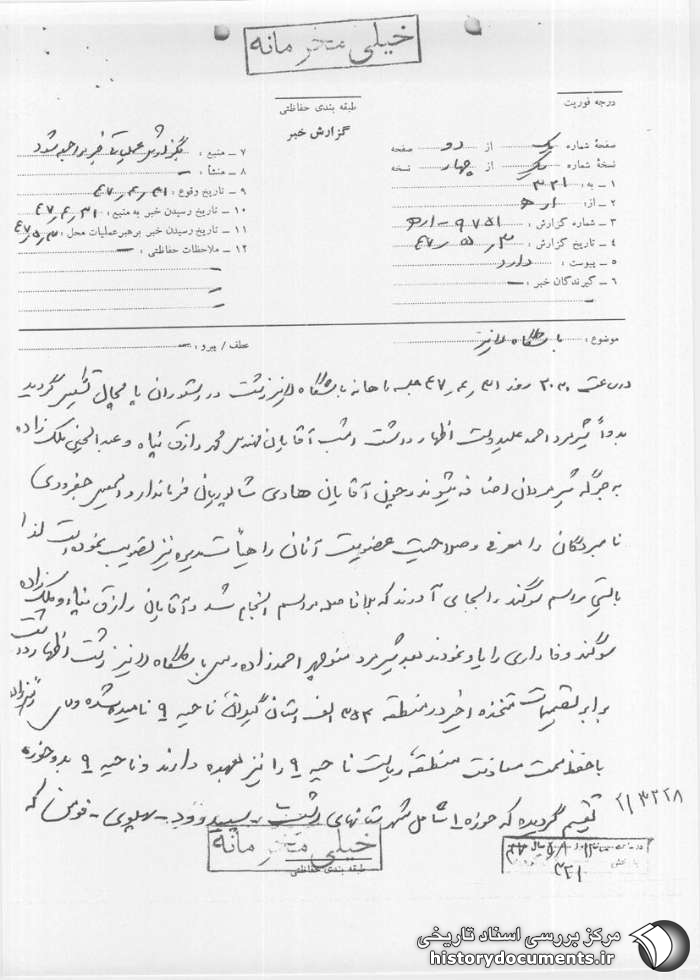 خیلی محرمانه
طبقه بندی حفاظتی
گزارش خبر
درجه فوریت
صفحهٔ شماره یک از دو صفحه
نسخهٔ شماره یک از چهار نسخه
۱ ـ به : ۳۲۱
۲ ـ از : ۱ ر ه
۳ ـ شماره گزارش : ۹۷۵۱ ـ ۱ ر ه
۴ ـ تاریخ گزارش : ۴۷٫۵٫۳
۵ ـ پیوست : دارد
۶ ـ گیرندگان خبر : ـ
۷ ـ منبع :
۸ ـ منشأ : ـ
۹ ـ تاریخ وقوع : ۴۷٫۴٫۳۱
۱۰ ـ تاریخ رسیدن خبر به منبع : ۴۷٫۴٫۳۱
۱۱ ـ تاریخ رسیدن خبر برهبر عملیات محل : ۴۷٫۵٫۲
۱۲ ـ ملاحظات حفاظتی : ـ
موضوع : باشگاه لاینز
عطف / پیرو : ـ
درساعت ۲۰۳۰ روز ۴۷٫۴٫۳۱ جلسه ماهانه باشگاه لاینز رشت در رستوران پامچال تشکیل گردید
بدواً شیرمرد احمد اظهار داشت امشب آقایان مهندس محمد رازق پناه و عبدالحسین ملک زاده
به جرگه شیرمردان اضافه میشوند و چون آقایان هادی شالوریان فرماندار و الحسین جفرودی
نامبردگان را معرفی و صلاحیت عضویت آنان را هیأت مدیره نیز تصویب نموده است لذا
بایستی مراسم سوگند را بجای آورند که بلافاصله مراسم انجام شد و آقایان رازق پناه و ملک زاده
سوگند وفاداری را یاد نمودند بعد شیرمرد منوچهر احمدزاده رئیس باشگاه لاینز رشت اظهار داشت
برابر تصمیمات متخذه اخیر در منطقه ۳۵۴ الف استان گیلان ناحیه ۹ نامیده شده و
با حفظ سمت معاونت منطقه، ریاست ناحیه ۹ را نیز بعهده دارند و ناحیه ۹ بدو حوزه
تقسیم گردیده که حوزه ۱ شامل شهرستانهای رشت ـ سپیدرود ـ پهلوی ـ فومن که
۲۱۳۲۲۸
خیلی محرمانه
طبقه بندی حفاظتی
۳۲۱
مرکز بررسی اسناد تاریخی
historydocuments.ir